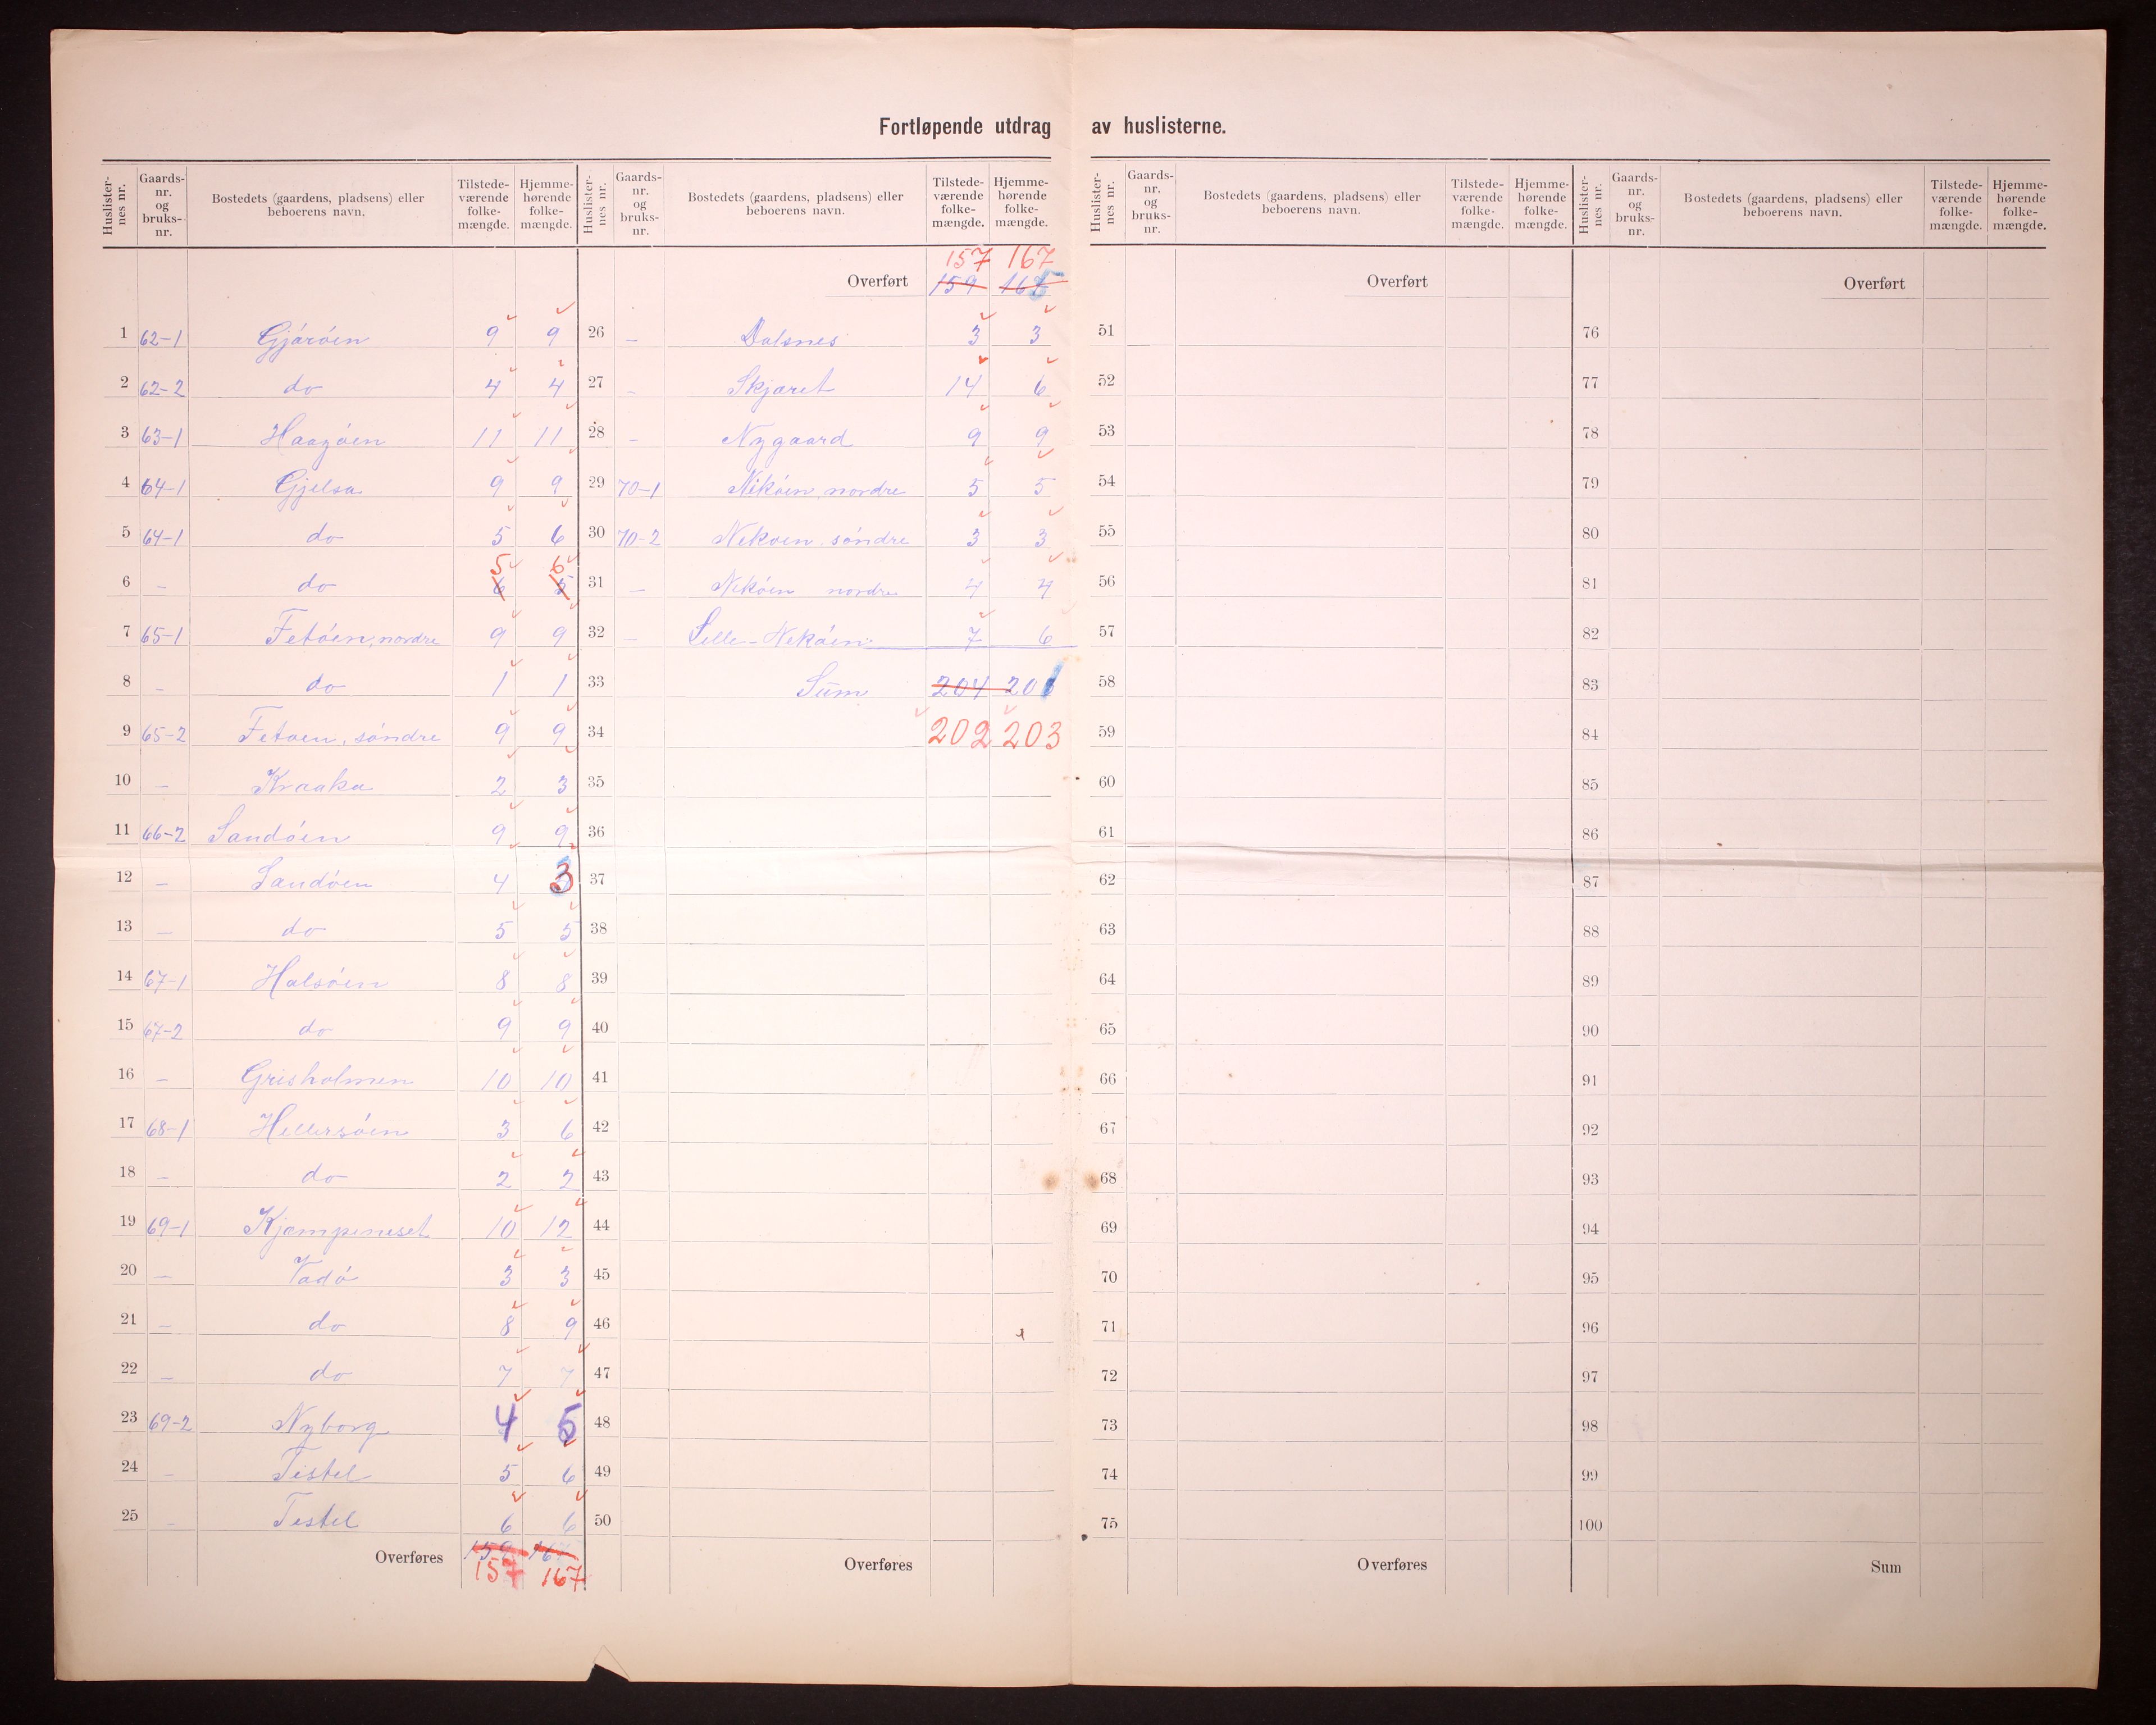 Fortløpende utdrag av huslisterne.
Huslister-nes nr. Gaards-nr. og bruks-nr. Bostedets (gaardens, pladsens) eller beboerens navn. Tilstede-værende folke-mængde. Hjemme-hørende folke-mængde.
1 62-1 Gjáróen 9 9
2 62-2 do 4 4
3 63-1 Haagóen 11 11
4 64-1 Gjelsa 9 9
5 64-1 do 5 6
5 6
6 - do 6 5
7 65-1 Fetóen, nordre 9 9
8 - do 1 1
9 65-2 Fetoen, sóndre 9 9
10 - Kraaka 2 3
11 66-2 Sandóen 9 9
12 - Sandóen 4 3
13 - do 5 5
14 67-1 Halsóen 8 8
15 67-2 do 9 9
16 - Grisholmen 10 10
17 68-1 Hellersóen 3 6
18 - do 2 2
19 69-1 Kjæmpeneset 10 12
20 - Vadó 3 3
21 - do 8 9
22 - do 7 7
23 69-2 Nyborg 4 5
24 - Tistel 5 6
25 - Tistel 6 6
Overføres 159 167
157 167
Huslister-nes nr. Gaards-nr. og bruks-nr. Bostedets (gaardens, pladsens) eller beboerens navn. Tilstede-værende folke-mængde. Hjemme-hørende folke-mængde.
157 167
Overført 159
26 - Dalsnes 3 3
27 - Skjæret 14 6
28 - Nygaard 9 9
29 70-1 Nekóen nordre 5 5
30 70-2 Nekoen sóndre 3 3
31 - Nekóen nordre 4 4
32 - Lille-Nekóen 7 6
33 Sum 204 201
34 202 203
35
36
37
38
39
40
41
42
43
44
45
46
47
48
49
50
Overføres
Huslister-nes nr. Gaards-nr. og bruks-nr. Bostedets (gaardens, pladsens) eller beboerens navn. Tilstede-værende folke-mængde. Hjemme-hørende folke-mængde.
Overført
51
52
53
54
55
56
57
58
59
60
61
62
63
64
65
66
67
68
69
70
71
72
73
74
75
Overføres
Huslister-nes nr. Gaards-nr. og bruks-nr. Bostedets (gaardens, pladsens) eller beboerens navn. Tilstede-værende folke-mængde. Hjemme-hørende folke-mængde.
Overført
76
77
78
79
80
81
82
83
84
85
86
87
88
89
90
91
92
93
94
95
96
97
98
99
100
Sum